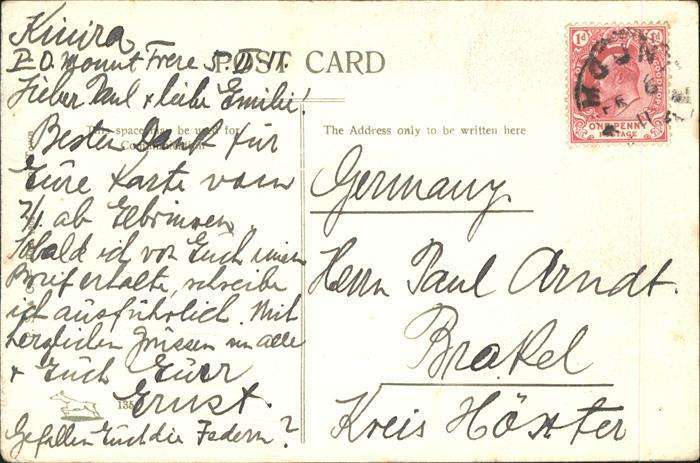 Kinira
P.O. Mount Frere 5. II. 11.
POST CARD
Lieber Paul + liebe Emilie!
This space may be used for
Communication
Besten Dank für
Eure Karte vom
2/1 ab Elbrinxen
Sobald ich von Euch einen
Brief erhalte, schreibe
ich ausführlich. Mit
herzlichen Grüssen an alle
+ Euch Euer
Ernst.
Gefallen Euch die Federn?
The Address only to be written here
Germany.
Herrn Paul Arndt.
Brakel
Kreis Höxter
1d 1d
ONE PENNY
POSTAGE